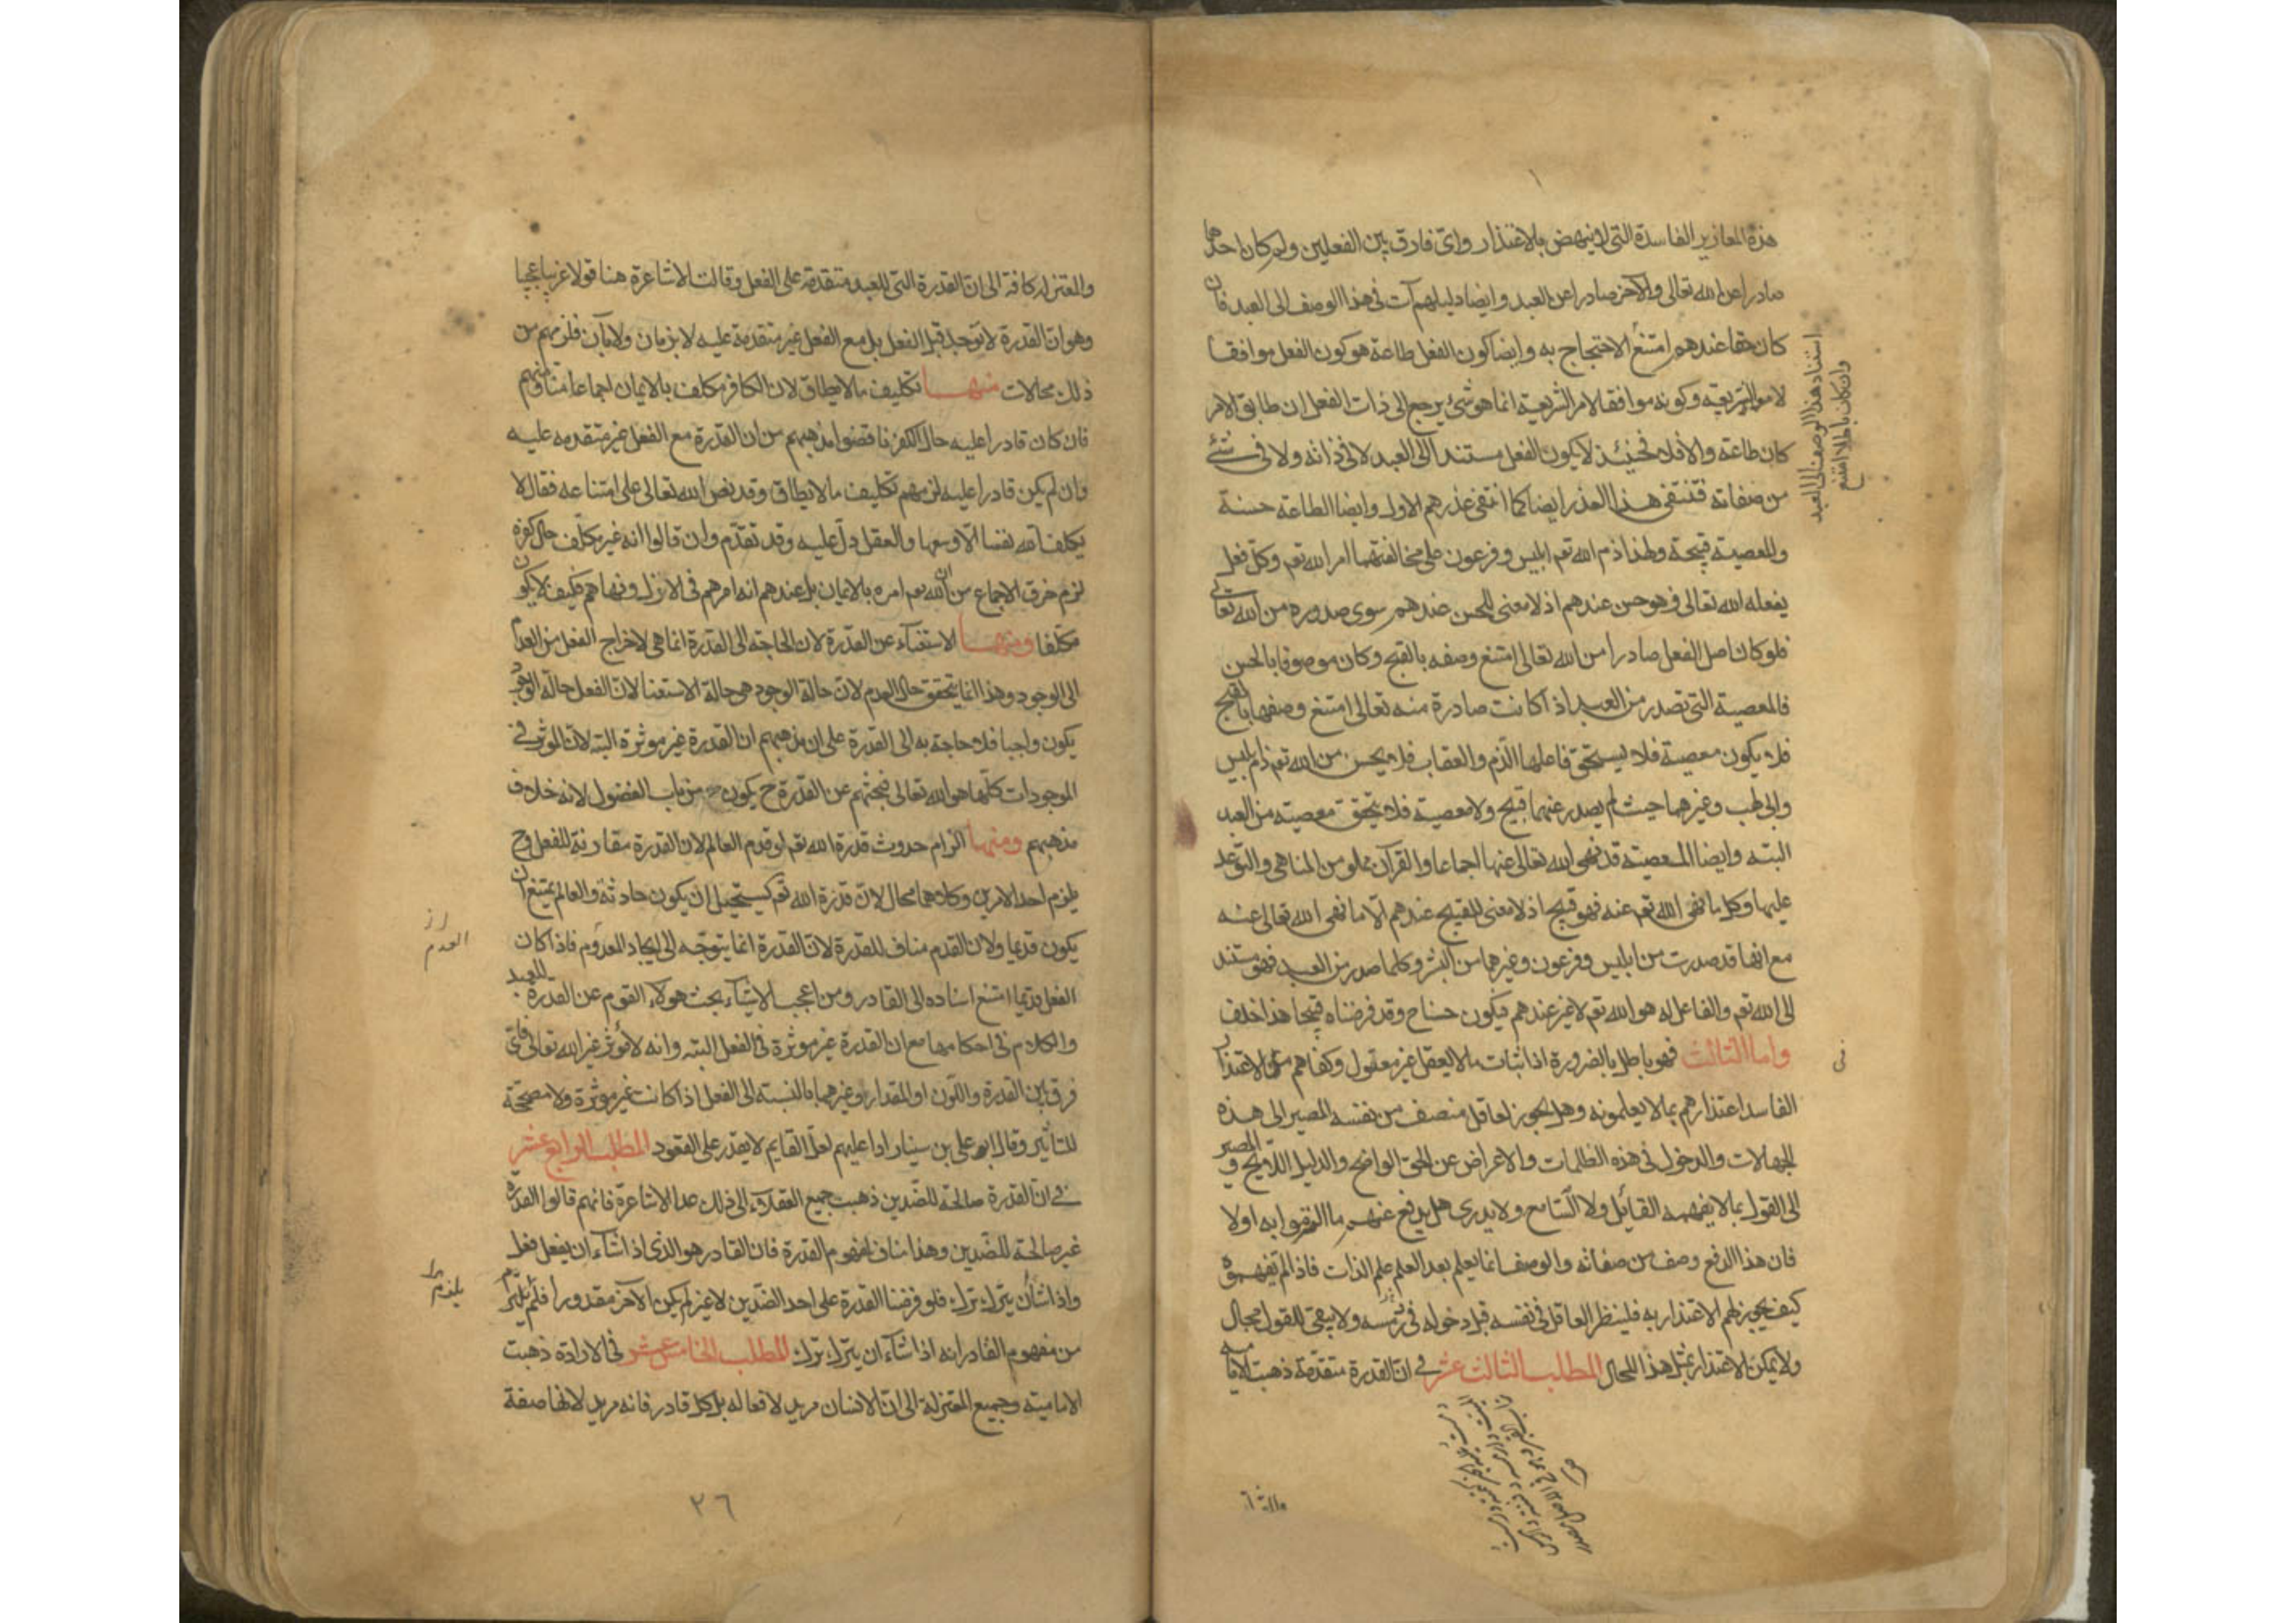 هذه المعازير الفاسدة التى لا ينهض بالاعتذار واىّ فارق بين الفعلين ولم كان احدهما
صادرا من الله تعالى والآخر صادرا عن العبد وايضا دليلهم آت فى هذا الوصف الى العبد فان
كان حقا عندهم امتنع الاحتجاج به وايضا كون الفعل طاعة هو كون الفعل موافقا
لامر الشريعة وكونه موافقا لامر الشريعة انما هو شئ يرجع الى ذات الفعل ان طابق الامر
كان طاعة والا فلا فحينئذ لا يكون الفعل مستندا الى العبد لا فى ذاته ولا فى شئ
من صفاته فينتفى هذا العذر ايضا كما انتفى عذرهم الاول وايضا الطاعة حسنة
والمعصية قبيحة ولهذا ذم الله تعم ابليس وفرعون على مخالفتهما امر الله تعم وكل فعل
يفعله الله تعالى فهو حسن عندهم اذ لا معنى للحسن عندهم سوى صدوره من الله تعالى
فلو كان اصل الفعل صادرا من الله تعالى امتنع وصفه بالقبح وكان موصوفا بالحسن
فالمعصية التى تصدر من العبد اذا كانت صادرة منه تعالى امتنع وصفها بالقبح
فلا يكون معصية فلا يستحق فاعلها الذم والعقاب فلا يحسن من الله تعم ذم ابليس
وابى لهب وغيرهما حيث لم يصدر عنهما قبيح ولا معصية فلا يتحقق معصية من العبد
البتة وايضا المعصية قد نهى الله تعالى عنها اجماعا والقرآن مملو من المناهى والتوعد
عليها وكل ما نهى الله تعم عنه فهو قبيح اذ لا معنى للقبيح عندهم الّا ما نهى الله تعالى عنه
مع انها قد صدرت من ابليس وفرعون وغيرهما من البشر وكلما صدر من العبد فهو مستند
الى الله تعم والفاعل له هو الله تعم لا غير عندهم فيكون حسنا ح وقد فرضناه قبيحا هذا خلف
واما الثالث فهو باطل بالضرورة اذ اثبات ما لا يعقل غير معقول وكفاهم من الاعتذار
الفاسد اعتذارهم بما لا يعلمونه وهل يجوز لعاقل منصف من نفسه المصير الى هذه
الجهالات والدخول فى هذه الظلمات والاعراض عن الحق الواضح والدليل اللايح و المصير
الى القول بما لا يفهمه القائل ولا السّامع ولا يدرى هل يدفع عنهم ما التزموا به اولا
فان هذا الدفع وصف من صفاته والوصف انما يعلم بعد العلم علم الذات فاذا لم يفهموه
كيف يجوز لهم الاعتذار به فلينظر العاقل فى نفسه قبل دخوله فى رمسه ولا يبقى للقول مجال
ولا يمكن الاعتذار بمثل هذا المحال المطلب الثالث عشر فى ان القدرة متقدمة ذهبت الامامية
استناد هذا الوصف الى العبد
وان كان باطلا امتنع
والمعتزلة كافة الى ان القدرة التى للعبد متقدمة على الفعل وقالت الاشاعرة هنا قولا غريبا عجيبا
وهو ان القدرة لا توجد قبل الفعل بل مع الفعل غير متقدمة عليه لا بزمان ولا بآن فلزمهم من
ذلك محالات منها تكليف ما لا يطاق لان الكافر مكلف بالايمان اجماعا منا ومنهم
فان كان قادرا عليه حال الكفر ناقضوا مذهبهم من ان القدرة مع الفعل غير متقدمه عليه
وان لم يكن قادرا عليه لزمهم تكليف ما لا يطاق وقد نص الله تعالى على امتناعه فقال لا
يكلف الله نفسا الّا وسعها والعقل دلّ عليه وقد تقدّم وان قالوا انه غير مكلّف حال كفره
لزم خرق الاجماع من ان الله تعم امره بالايمان بل عندهم انه امرهم فى الازل ونهاهم فكيف لا يكون
مكلفا ومنها الاستغناء عن القدرة لان الحاجة الى القدرة انما هى لاخراج الفعل من العدم
الى الوجود وهذا انما يتحقق حال العدم لان حالة الوجود هى حالة الاستغنا لان الفعل حالة الوجود
يكون واجبا فلا حاجة به الى القدرة على ان مذهبهم ان القدرة غير موثرة البتة لان الموثر فى
الموجودات كلّها هو الله تعالى فبحثهم عن القدرة ح يكون من باب الفضول لانه خلاف
مذهبهم ومنها الزام حدوث قدرة الله تعم او قدم العالم لان القدرة مقارنة للفعل وح
يلزم احد الامرين وكلاهما محال لان قدرة الله تعم يستحيل ان يكون حادثة والعالم يمتنع ان
يكون قديما ولان القدم مناف للقدرة لان القدرة انما يتوجّه الى ايجاد المعدوم فاذا كان
الفعل قديما امتنع اسناده الى القادر ومن اعجب الاشياء بحث هولاء القوم عن القدرة للعبد
والكلام فى احكامها مع ان القدرة غير موثرة فى الفعل البتة وانه لا مؤثر غير الله تعالى فاىّ
فرق بين القدرة واللّون او المقدار وغيرهما بالنسبة الى الفعل اذا كانت غير موثرة ولا مصححة
للتأثير وقال ابو على بن سينا رادا عليهم لعلّ القايم لا يقدر على القعود المطلب الرابع عشر
فى ان القدرة صالحة للضّدين ذهبت جميع العقلاء الى ذلك عدا الاشاعرة فانهم قالوا القدرة
غير صالحة للضّدين وهذا مناف لمفهوم القدرة فان القادر هو الذى اذا شاء ان يفعل فعل
واذا شاء ان يترك ترك فلو فرضنا القدرة على احد الضدين لا غير لم يكن الآخر مقدورا فلم يلزم
من مفهوم القادر انه اذا شاء ان يترك ترك المطلب الخامس عشر فى الارادة ذهبت
الامامية وجميع المعتزلة الى ان الانسان مريد لافعاله بل كل قادر فانه مريد لانها صفة
العدم
٢٦